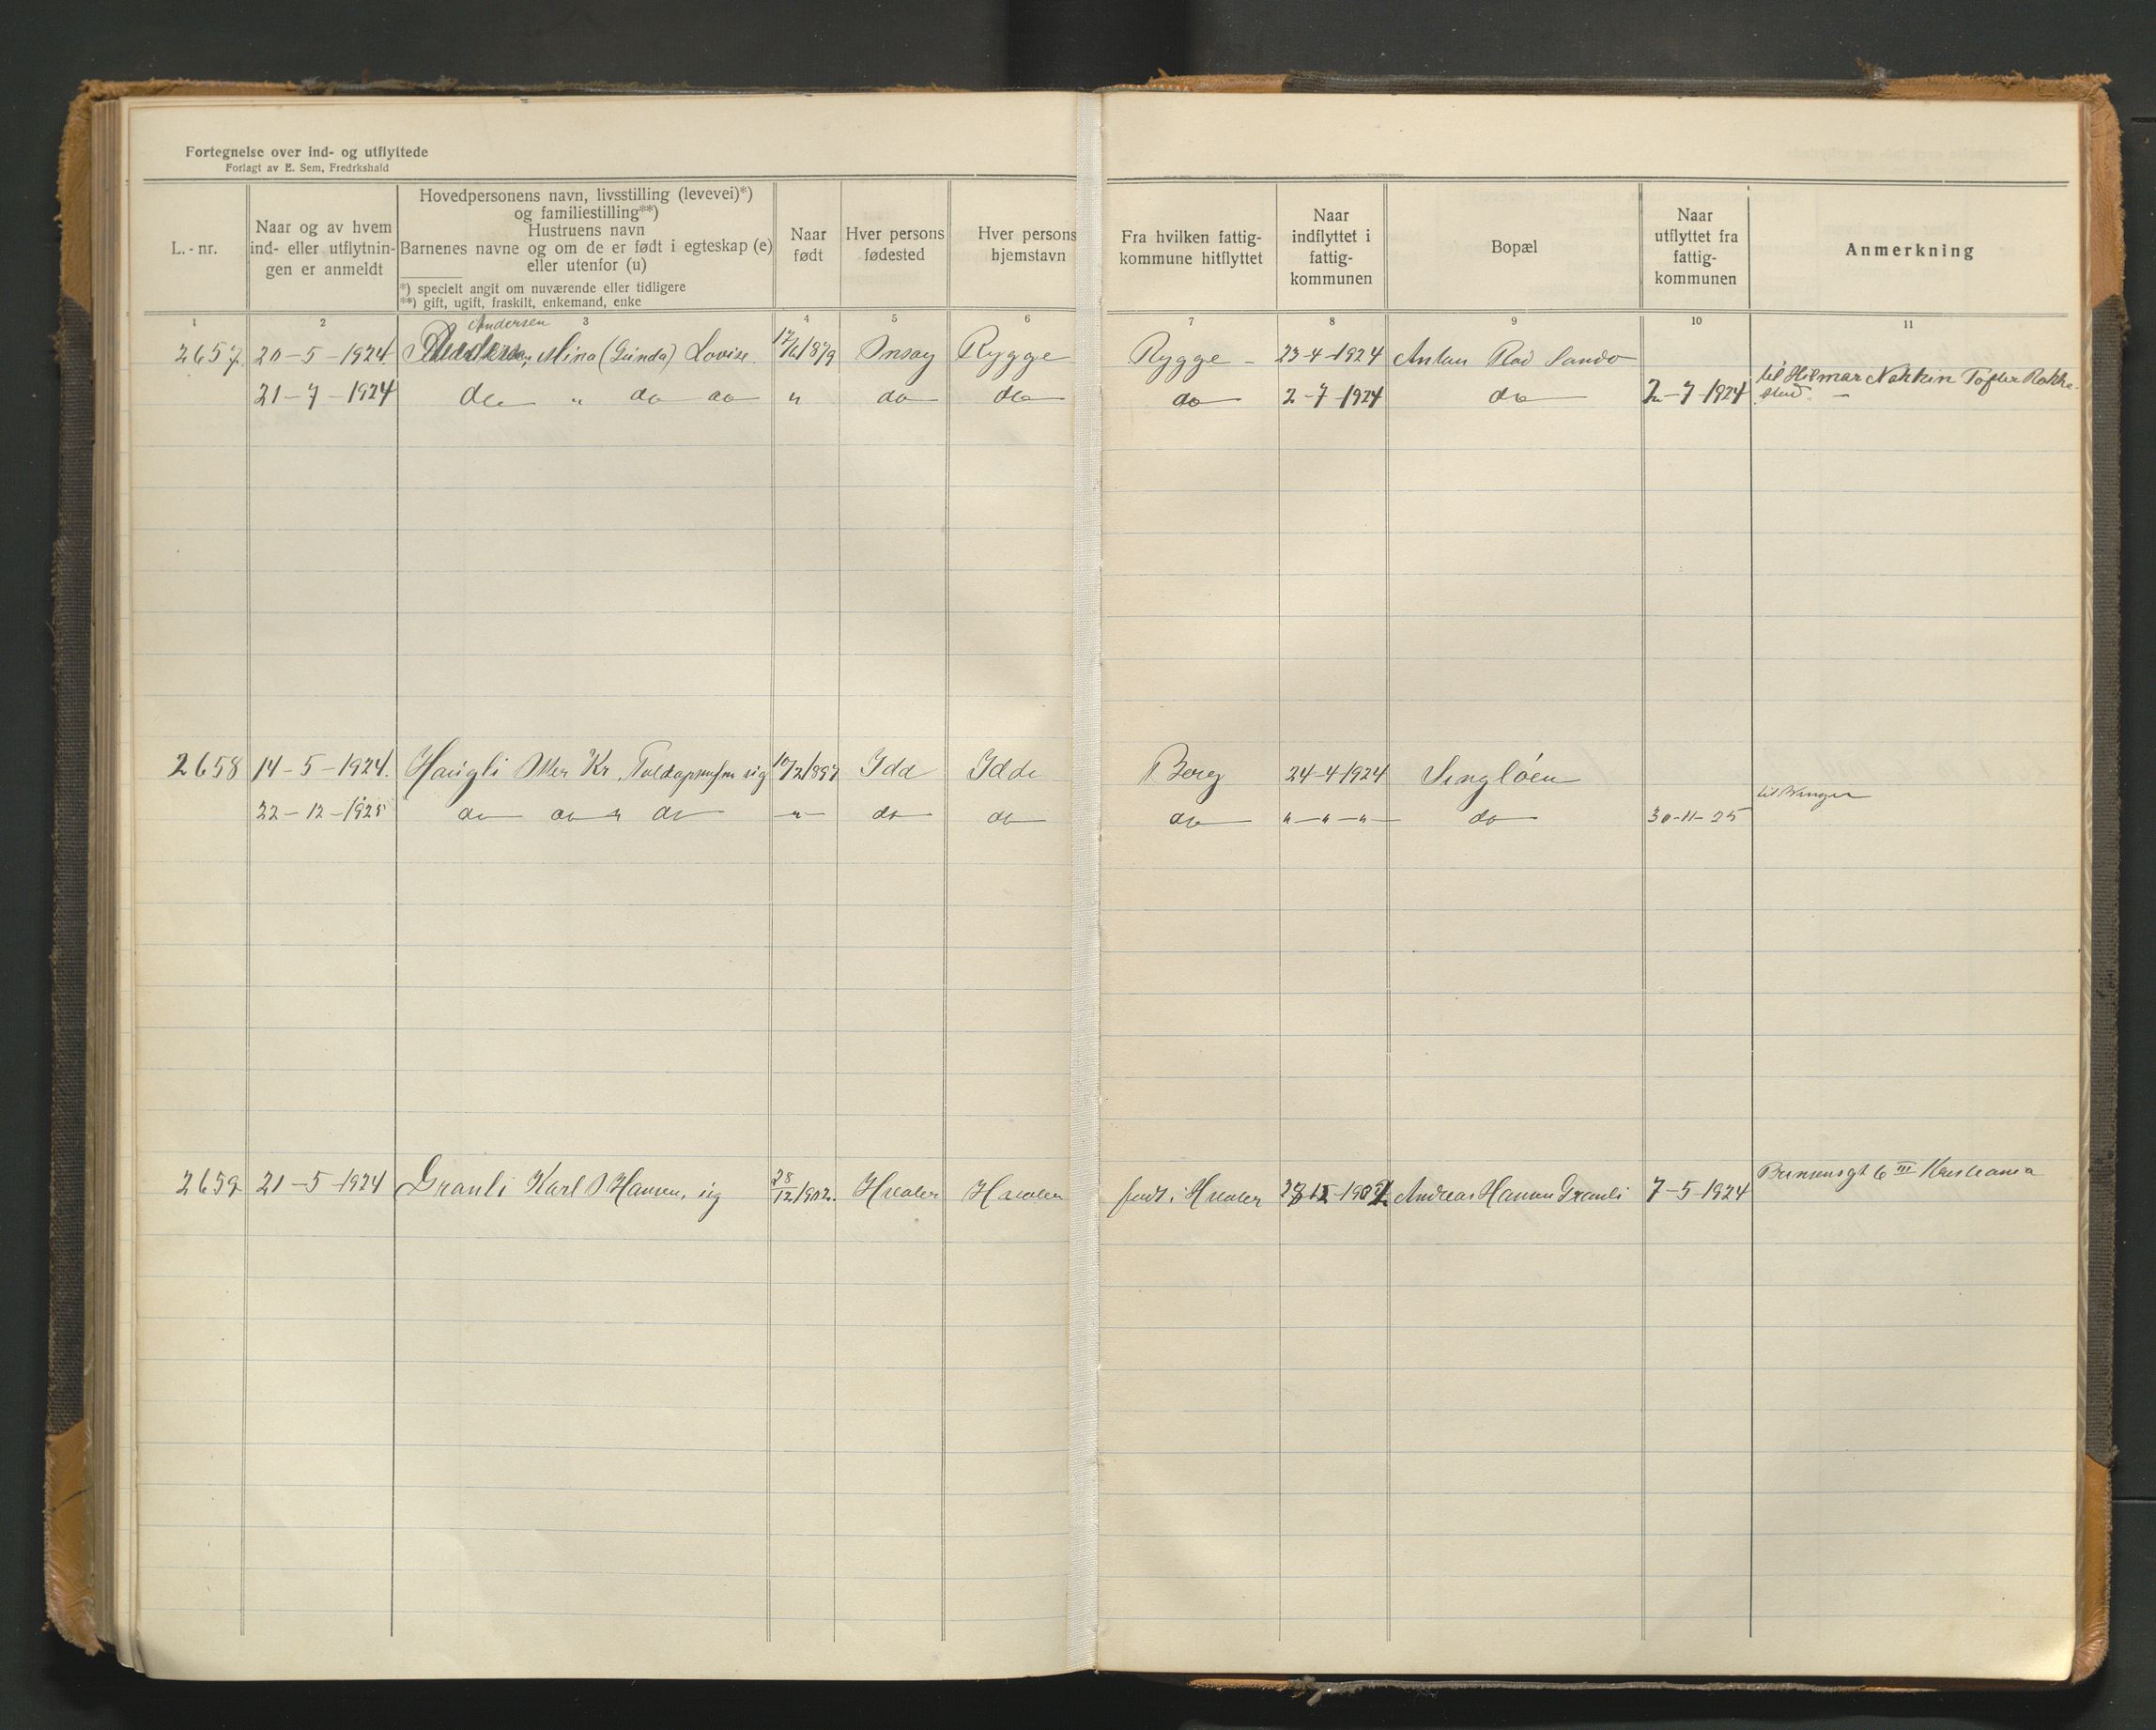 Fortegnelse over ind- og utflyttede
Forlagt av E. Sem, Fredrkshald
L.-nr.
Naar og av hvem
ind- eller utflytnin-
gen er anmeldt
Hovedpersonens navn, livsstilling (levevei)*)
og familiestilling**)
Hustruens navn
Barnenes navne og om de er født i egteskap (e)
eller utenfor (u)
*) specielt angit om nuværende eller tidligere
**) gift, ugift, fraskilt, enkemand, enke
Naar
født
Hver persons
fødested
Hver persons
hjemstavn
Fra hvilken fattig-
kommune hitflyttet
Naar
indflyttet i
fattig-
kommunen
Bopæl
Naar
utflyttet fra
fattig-
kommunen
Anmerkning
1 2 3 4 5 6 7 8 9 10 11
Andersen
2657. 20-5-1924. Mina (Gunda) Lovise. 1879 Onsøy Rygge Rygge - 23-4-1924 Anton Rød Sandø
21-7-1924 do " do do " do do do 2-7-1924 do 2-7-1924 til Hilmar Nakkim Tofter Rakke-
stad. -
2658 14-5-1924. Haugli Kr. ug Idd Idde Berg 24-4-1924 Singløen
til
22-12-1925 do do " do -"- do do do "-"-"- do 30-11-25
2659 21-5-1924 Granli Karl Hansen, ug 28/12 1902. Hvaler Hvaler født i Hvaler Andreas Hansen Granli 7-5-1924 6 III Kristiania